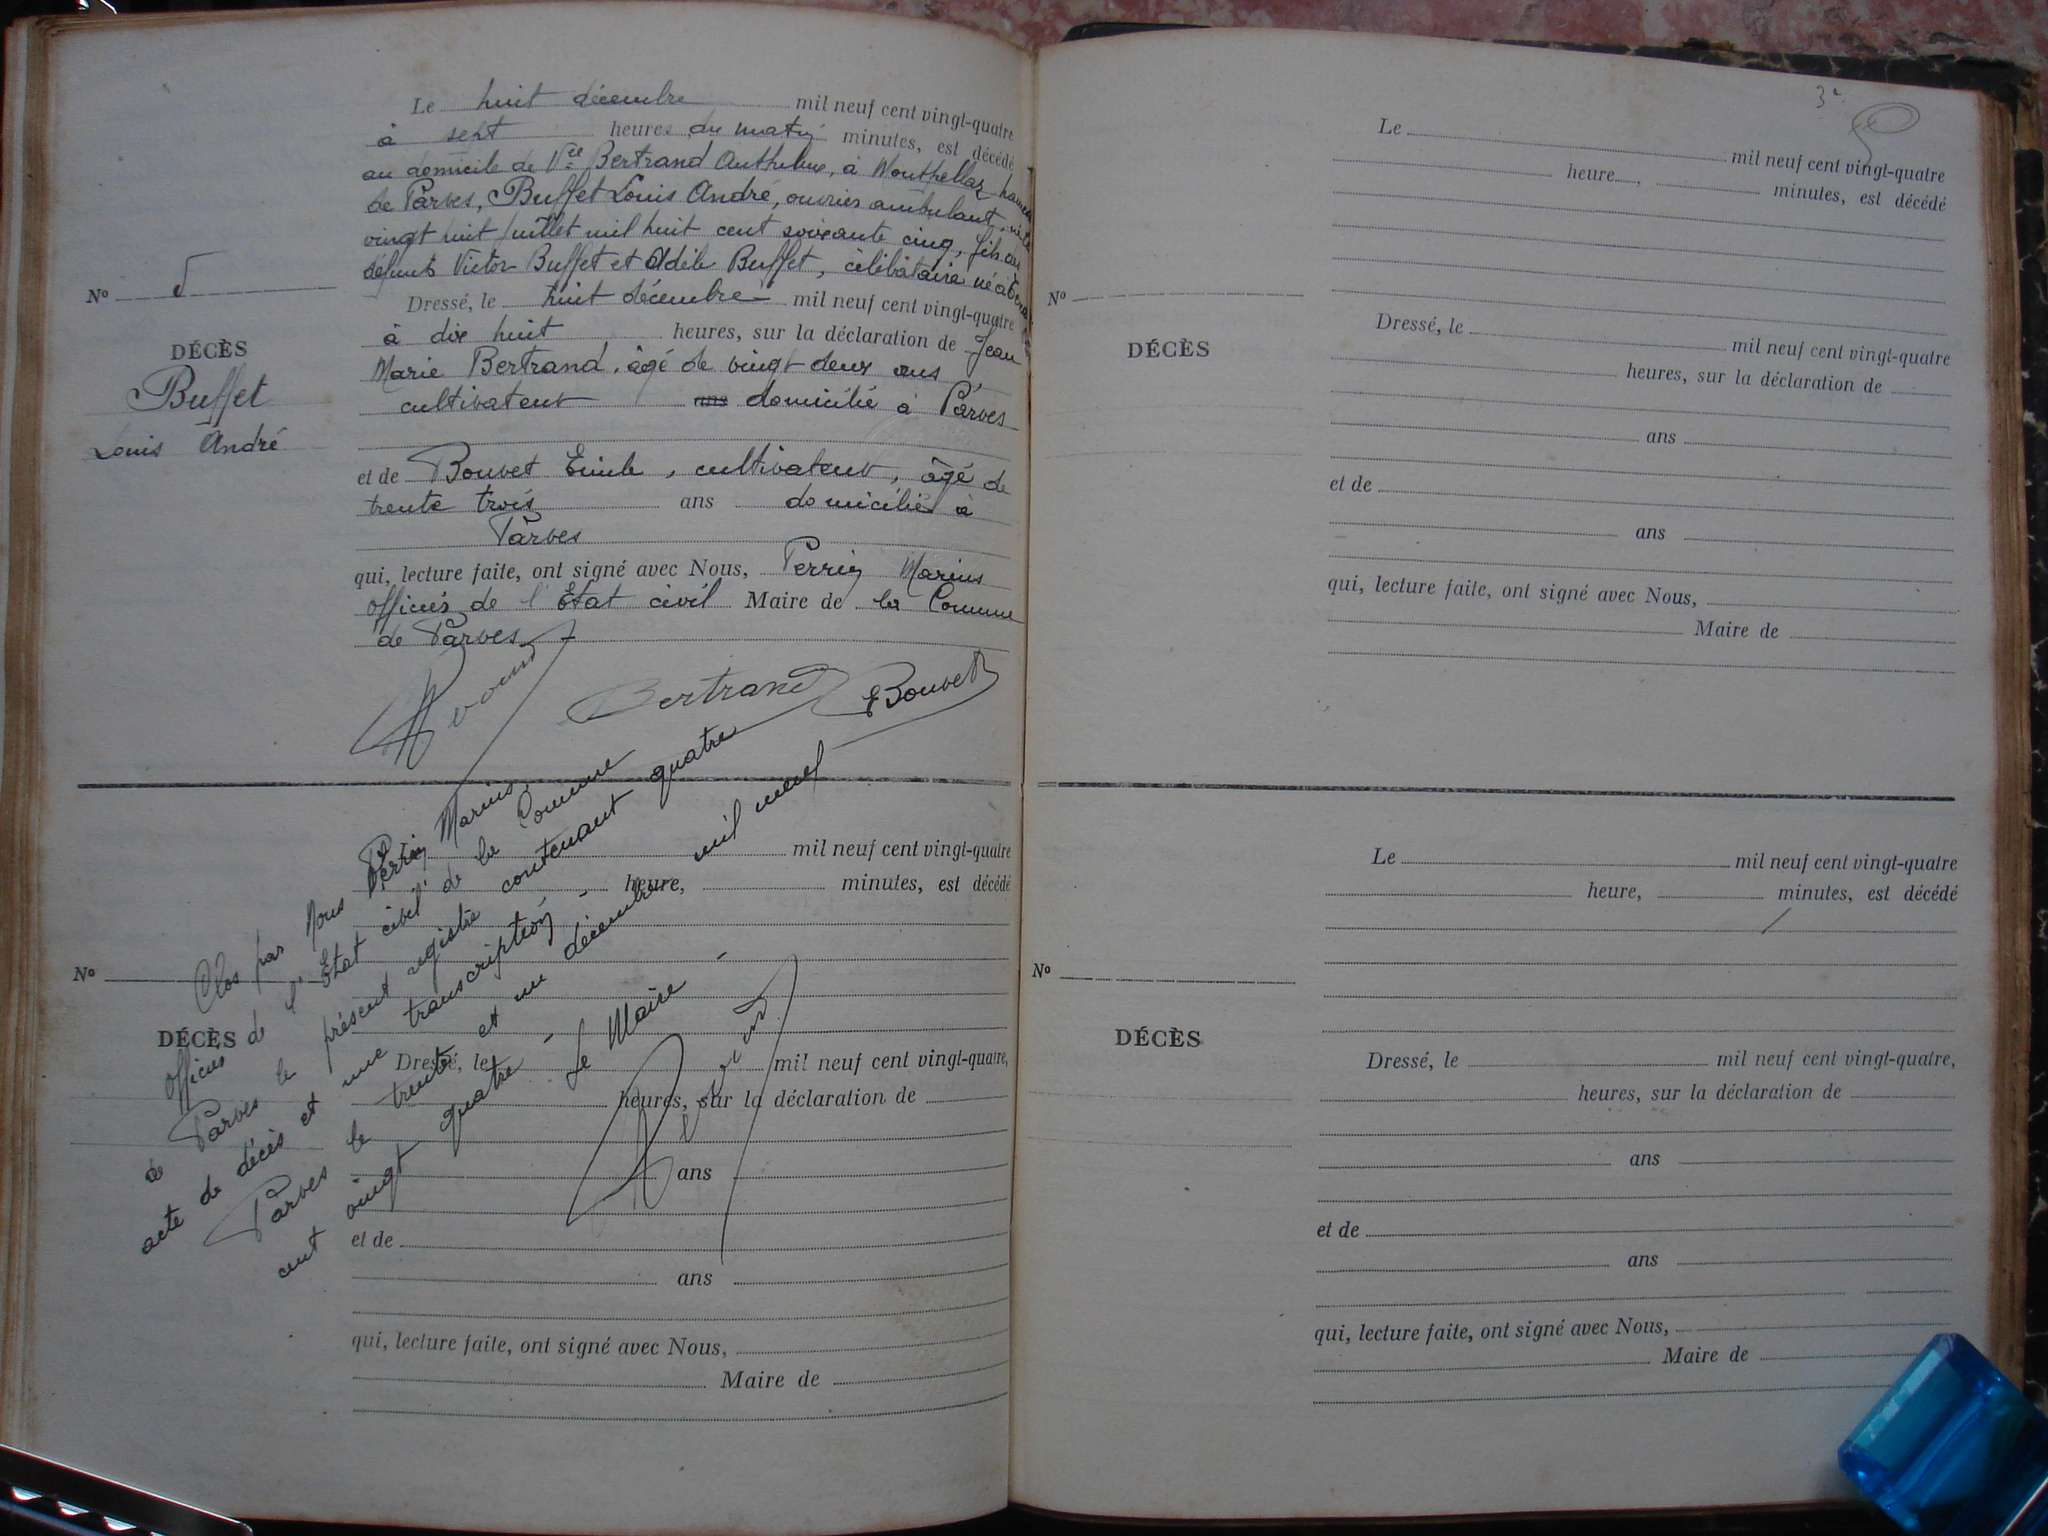 Le huit décembre mil neuf cent vingt-quatre
à sept heures du matin minutes, est décédé
au domicile de Vve Bertrand Anthelme, à Monthellaz hameau
de Parves, Buffet Louis André, ouvrier ambulant, né le
vingt huit juillet mil huit cent soixante cinq, fils de
défunts Victor Buffet et Adèle Buffet, célibataire né à
Nº 5
DÉCÈS
Buffet
Louis André
Dressé, le huit décembre mil neuf cent vingt-quatre
à dix huit heures, sur la déclaration de Jean
Marie Bertrand, âgé de vingt deux ans
cultivateur ans domicilié à Parves
et de Bouvet Emile, cultivateur, âgé de
trente trois ans domiciliés à
Parves
qui, lecture faite, ont signé avec Nous, Perrin Marius
officier de l'Etat civil Maire de la Commune
de Parves
Bertrand EBouvet
Le mil neuf cent vingt-quatre
heure, minutes, est décédé
Nº
DÉCÈS
Dressé, le mil neuf cent vingt-quatre,
heures, sur la déclaration de
ans
et de
ans
qui, lecture faite, ont signé avec Nous,
Maire de
Clos par Nous Perrin Marius
officier de l'Etat civil de la Commune
de Parves le présent registre contenant quatre
acte de décès et une transcription -
Parves le trente et un décembre mil neuf
cent vingt quatre - Le Maire -
3e
Le mil neuf cent vingt-quatre
heure, minutes, est décédé
Nº
DÉCÈS
Dressé, le mil neuf cent vingt-quatre
heures, sur la déclaration de
ans
et de
ans
qui, lecture faite, ont signé avec Nous,
Maire de
Le mil neuf cent vingt-quatre
heure, minutes, est décédé
Nº
DÉCÈS
Dressé, le mil neuf cent vingt-quatre,
heures, sur la déclaration de
ans
et de
ans
qui, lecture faite, ont signé avec Nous,
Maire de